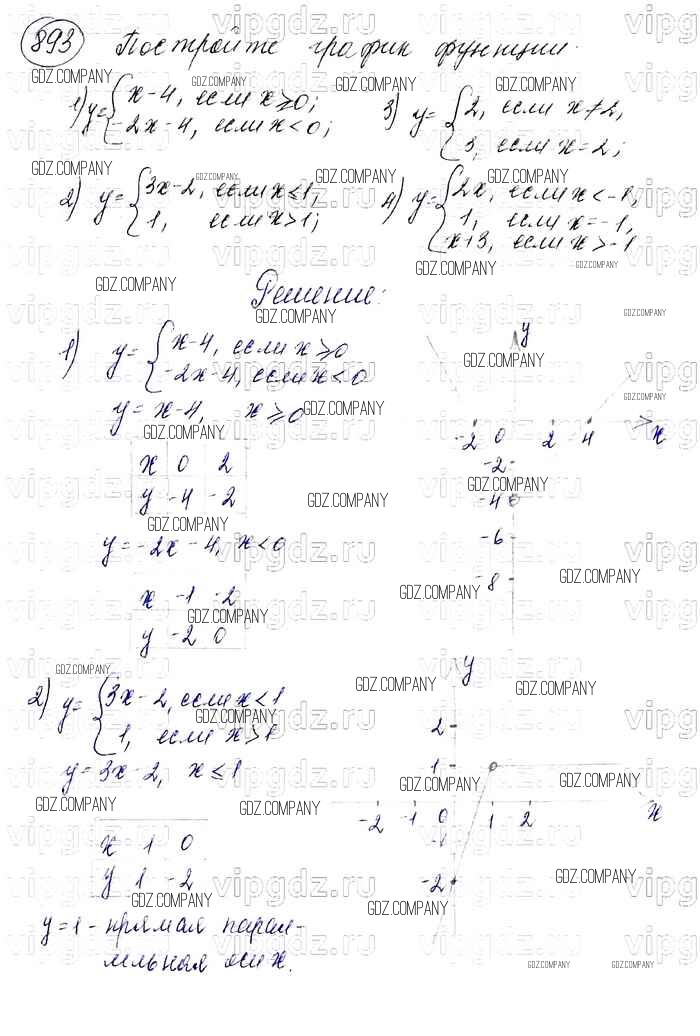 893 Постройте график функции.
1) y = { x-4, если x ≥ 0;
-2x-4, если x < 0;
3) y = { 2, если x ≠ 2,
3, если x = 2;
2) y = { 3x-2, если x ≤ 1,
1, если x > 1;
4) y = { 2x, если x < -1,
1, если x = -1,
x+3, если x > -1
Решение:
1) y = { x-4, если x ≥ 0
-2x-4, если x < 0
y = x-4, x ≥ 0
x 0 2
y -4 -2
y = -2x-4, x < 0
x -1 -2
y -2 0
y
-2 0 2 4 x
-2
-4
-6
-8
2) y = { 3x-2, если x < 1
1, если x > 1
y = 3x-2, x ≤ 1
x 1 0
y 1 -2
y = 1 - прямая парал-
лельная оси x.
y
2
1
-2 -1 0 1 2 x
-1
-2
vipgdz.ru
GDZ.COMPANY